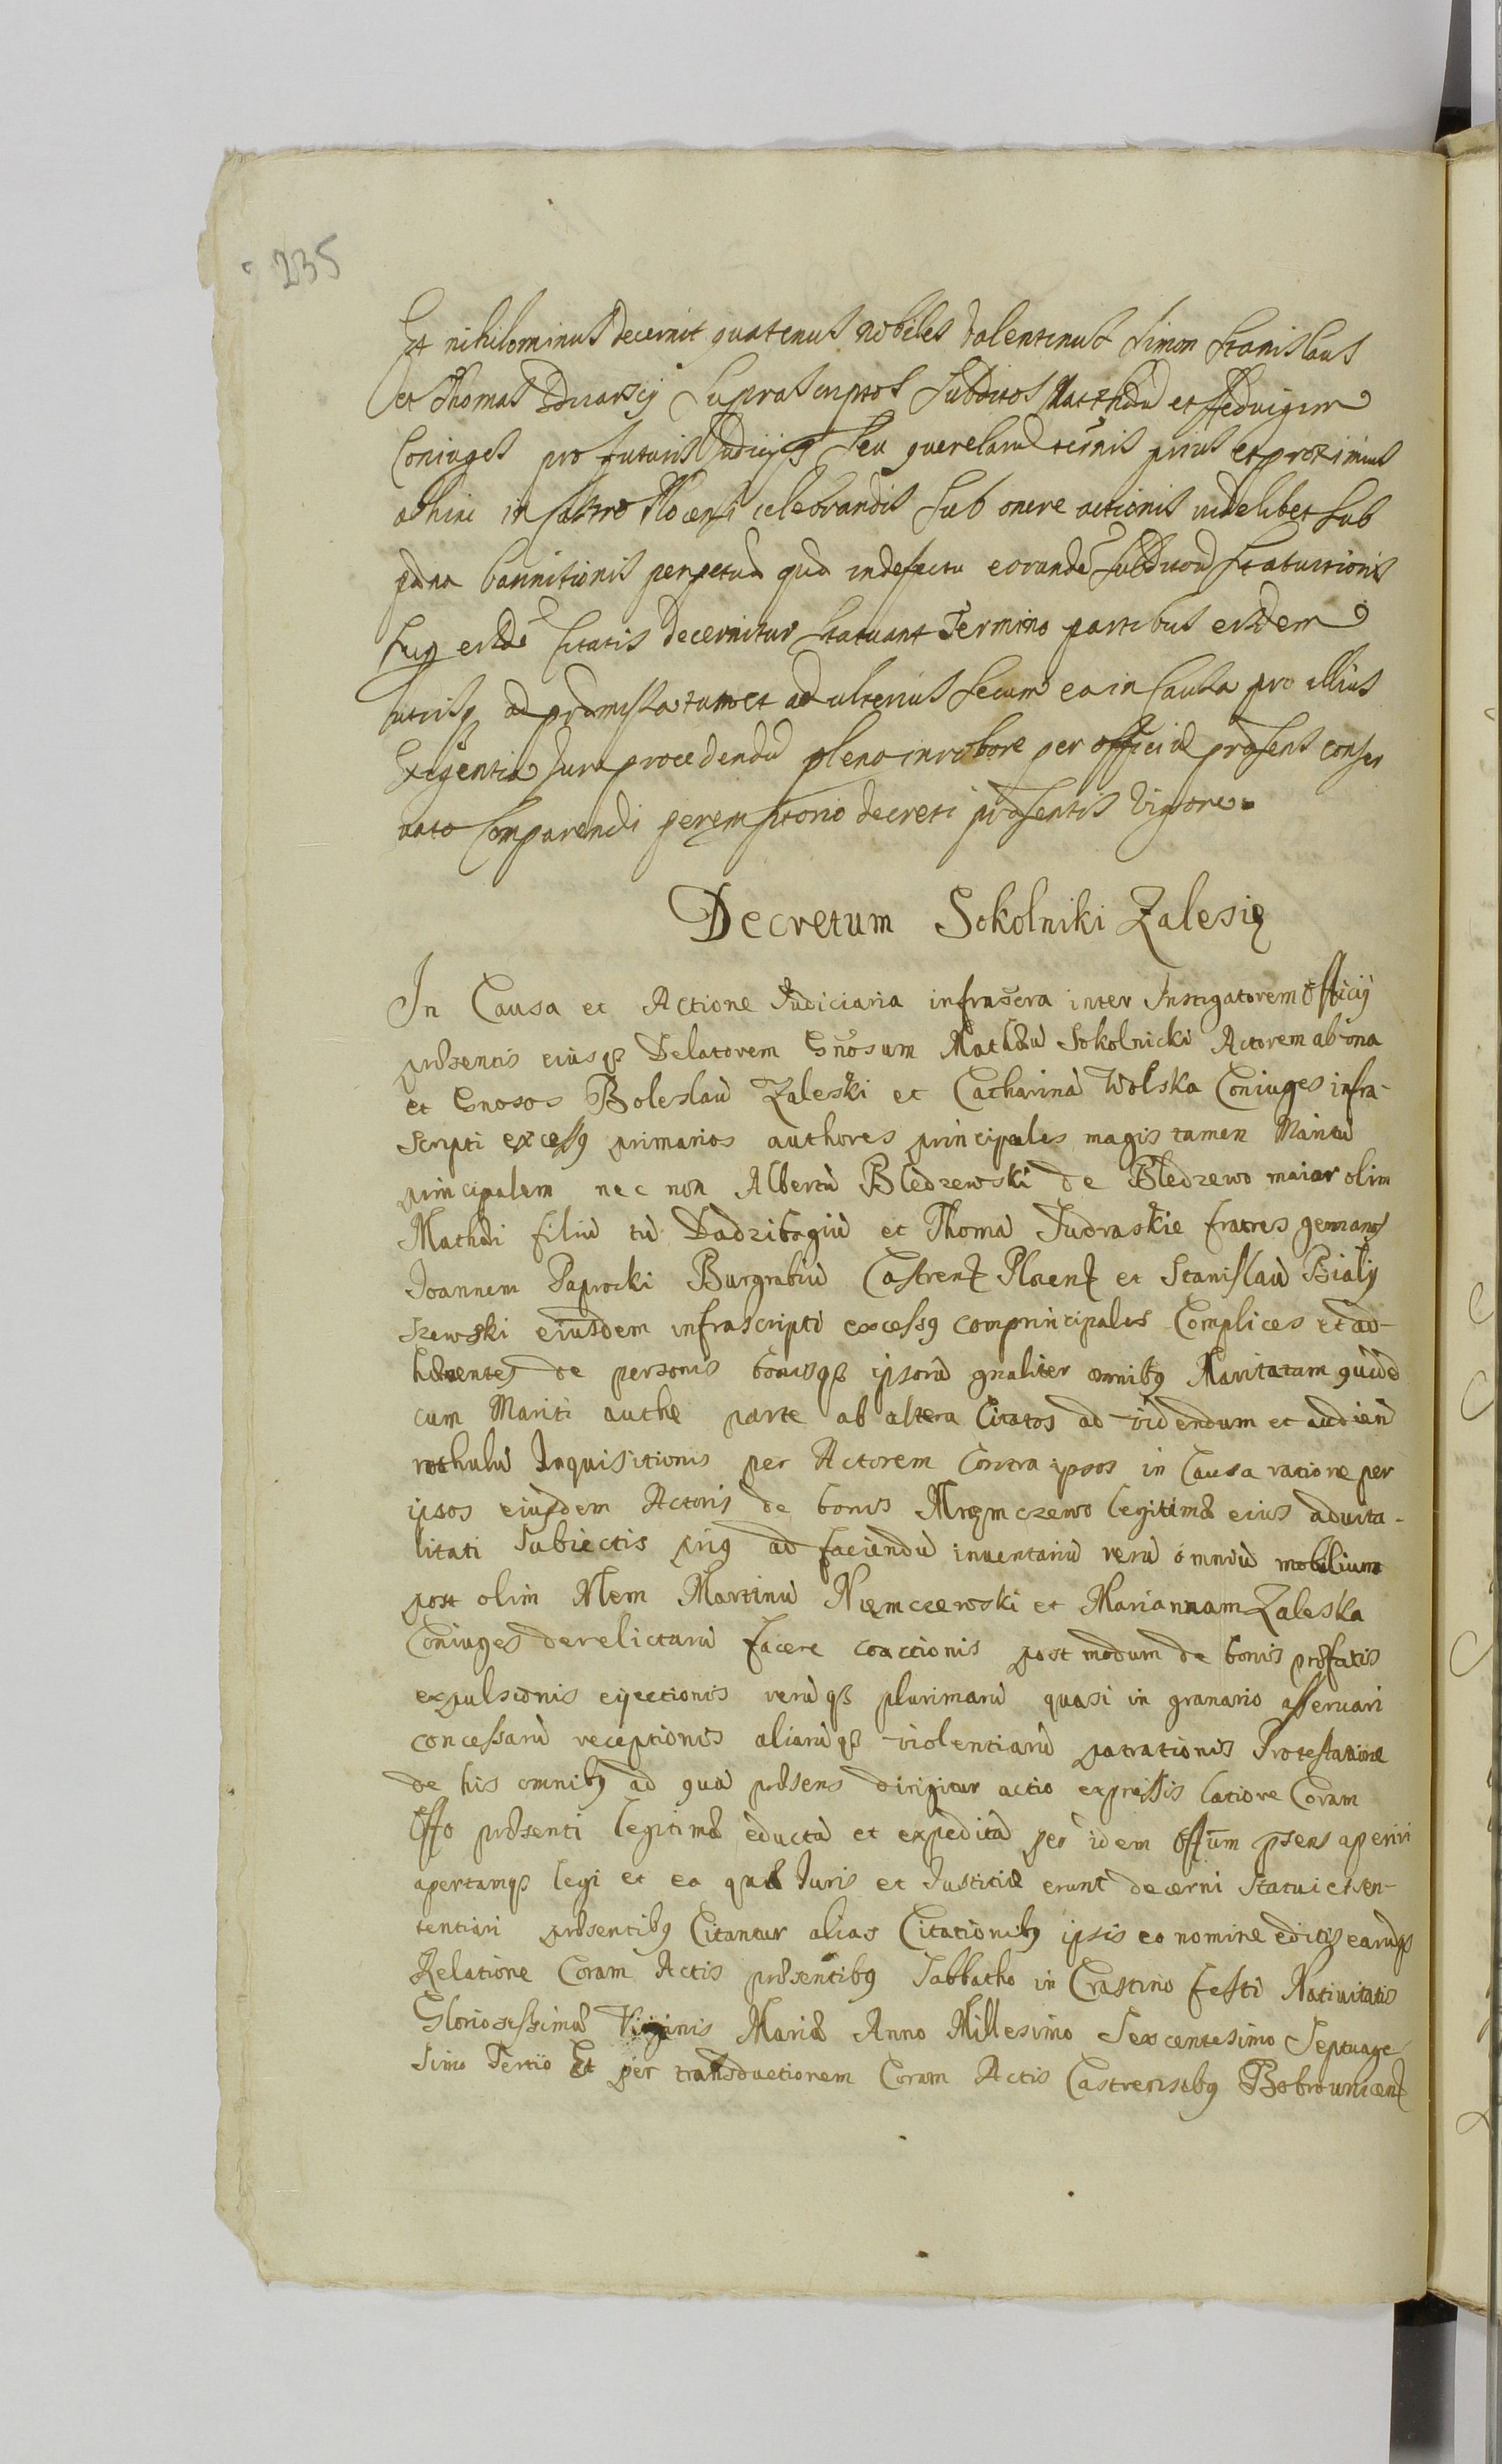 235
Et nihilominus decernit quatenus nobiles Valentinus Simon Stanislaus
et Thomas suprascriptos subditos Matthæū et Hedvigim
Coniuges pro futuris Judicijs seu querelarū terminis prius et proximius
adhinc in Castro Plocensi celebrandis sub onere actionis sub
pæna bannitionis perpetuæ quæ in defectu eorundē subditorū statuitionis
super eisdē citatis decernitur statuant Termino partibus eisdem
utrisq; ad præmissa tum et ad ulterius secum ea in Causa pro illius
Exigentia Jure procedendū pleno in robore per officiū præsens conser
uato Comparendi peremptorio decreti præsentis vigore.
Decretum Sokolniki Zalesię
In Causa et Actione Judiciaria infrascra inter Instigatorem Officij
præsentis eiusq; Delatorem Gnosum Mathæū Sokolnicki Actorem ab una
et Gnosos Boleslaū Zaleski et Catharinā Wolska Coniuges infra-
scripti excessq primarios authores principales magis tamen Maritū
principalem nec non Albertū Bledzewski de Bledzewo maior olim
Mathæi filiū tū Dadzibogiū et Thomā Judraskie fratres germanos
Joannem Paprocki Burgrabiū Castrenʃ Plocenʃ et Stanislaū Bialy
szewski eiusdem infrascripti excessq comprincipales Complices et ad-
hærentes de personis bonisq; ipsorū gnaliter omnibq Maritatam quidē
cum Mariti authe parte ab altera Citatos ad videndum et audienđ
rothulū Inquisitionis per Actorem Contra ipsos in Causa ratione per
ipsos eiusdem Actoris de bonis Niemczewo legitimæ eius aduita-
litati subiectis priq ad faciendū inuentariū verū omniū mobilium
post olim Nlem Martinū Niemczewski et Mariannam Zaleska
Coniuges derelictarū facere coactionis post modum de bonis præfatis
expulsionis eijectionis rerūq; plurimarū quasi in granario asseruari
concessarū receptionis aliarūq; violentiarū patrationis Protestatione
de his omnibq ad quā præsens dirigitur actio expressis latiore Coram
Offo præsenti legitime eductā et expeditā per idem Offum pnsens aperiri
apertamq; legi et ea quæ Juris et Justitiæ erunt decerni statui et sen-
tentiari præsentibq Citantur alias Citationibq ipsis eo nomine editis earūq;
Relatione Coram Actis præsentibq Sabbatho in Crastino festi Natiuitatis
Gloriosissimæ Virginis Mariæ Anno Millesimo Sexcentesimo Septuage
simo Tertio Et per transductionem Coram Actis Castrensibq Bobrounicenʃ